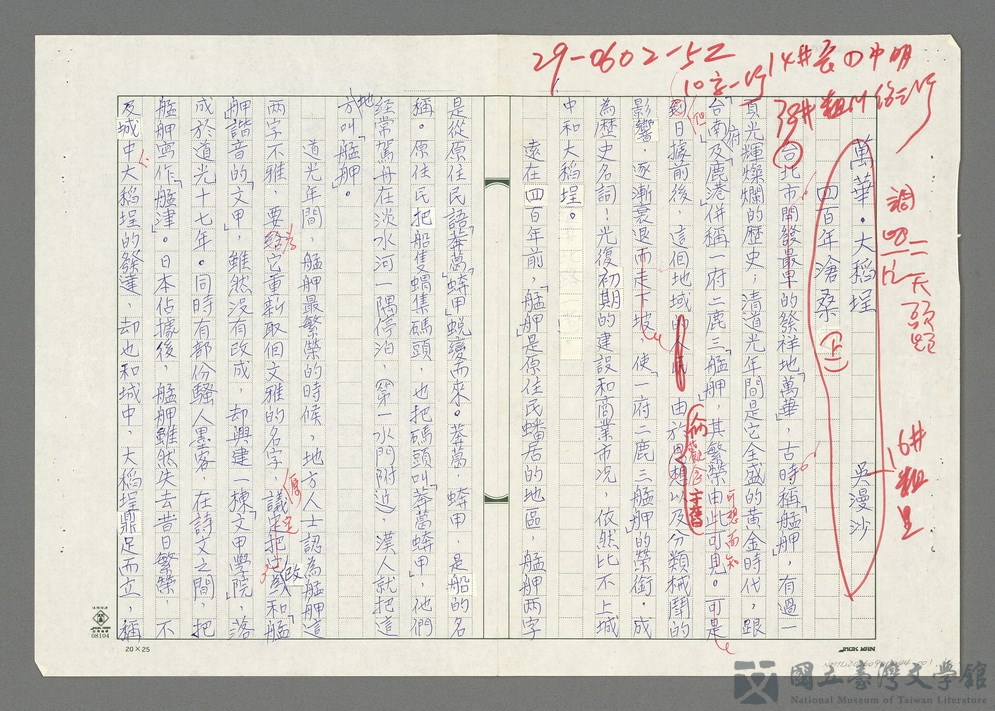 29-0602-52
10字一行
萬華·大稻埕
四百年滄桑(上)
吳漫沙
16#粗黑
台北市開發最早的發祥地「萬華」,古時稱「艋舺」,有過一
頁光輝燦爛的歷史,清道光年間是它全盛的黃金時代,跟
台南府及鹿港併稱一府二鹿三「艋舺」,其繁榮由此可見。可是
到日據前後,這個地域的人民由於思想以及分類械鬥的
影響,逐漸衰退而走下坡,使「一府二鹿三艋舺」的榮銜,成
為歷史名詞!光復初期的建設和商業市況,依然比不上城
中和大稻埕。
遠在四百年前,「艋舺」是原住民蟠居的地區,艋舺兩字
是從原住民語「莽葛」「蟒甲」蛻變而來。莽葛,蟒甲,是船的名
稱。原住民把船隻蝟集碼頭,也把碼頭叫「莽葛蟒甲」,他們
經常駕舟在淡水河一隅停泊,(第一水門附近),漢人就把這
地方叫「艋舺」。
道光年間,艋舺最繁榮的時候,地方人士認為艋舺這
兩字不雅,要給它重新取個文雅的名字,議定把它改和「艋
舺」諧音的「文甲」,雖然沒有改成,却興建一棟「文甲學院」,落
成於道光十七年。同時有部份騷人墨客,在詩文之間,把
艋舺寫作「艋津」。日本佔據後,艋舺雖然失去昔日繁榮,不
及城中大稻埕的發達,却也和城中,大稻埕鼎足而立,稱
20×25
08104
國立臺灣文學館
National Museum of Taiwan Literature